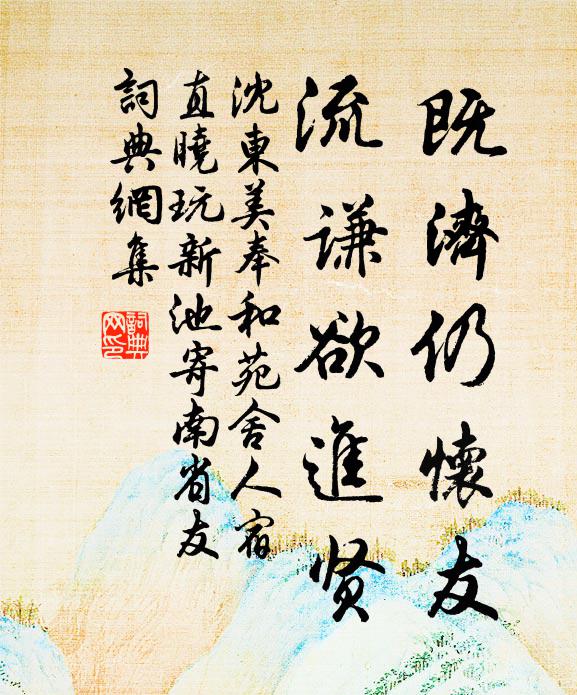 既濟仍懷友
流謙欲進贤
沈東美奉和苑舍人宿
直曉玩新池寄南省友
詞典網集
詞典
网印